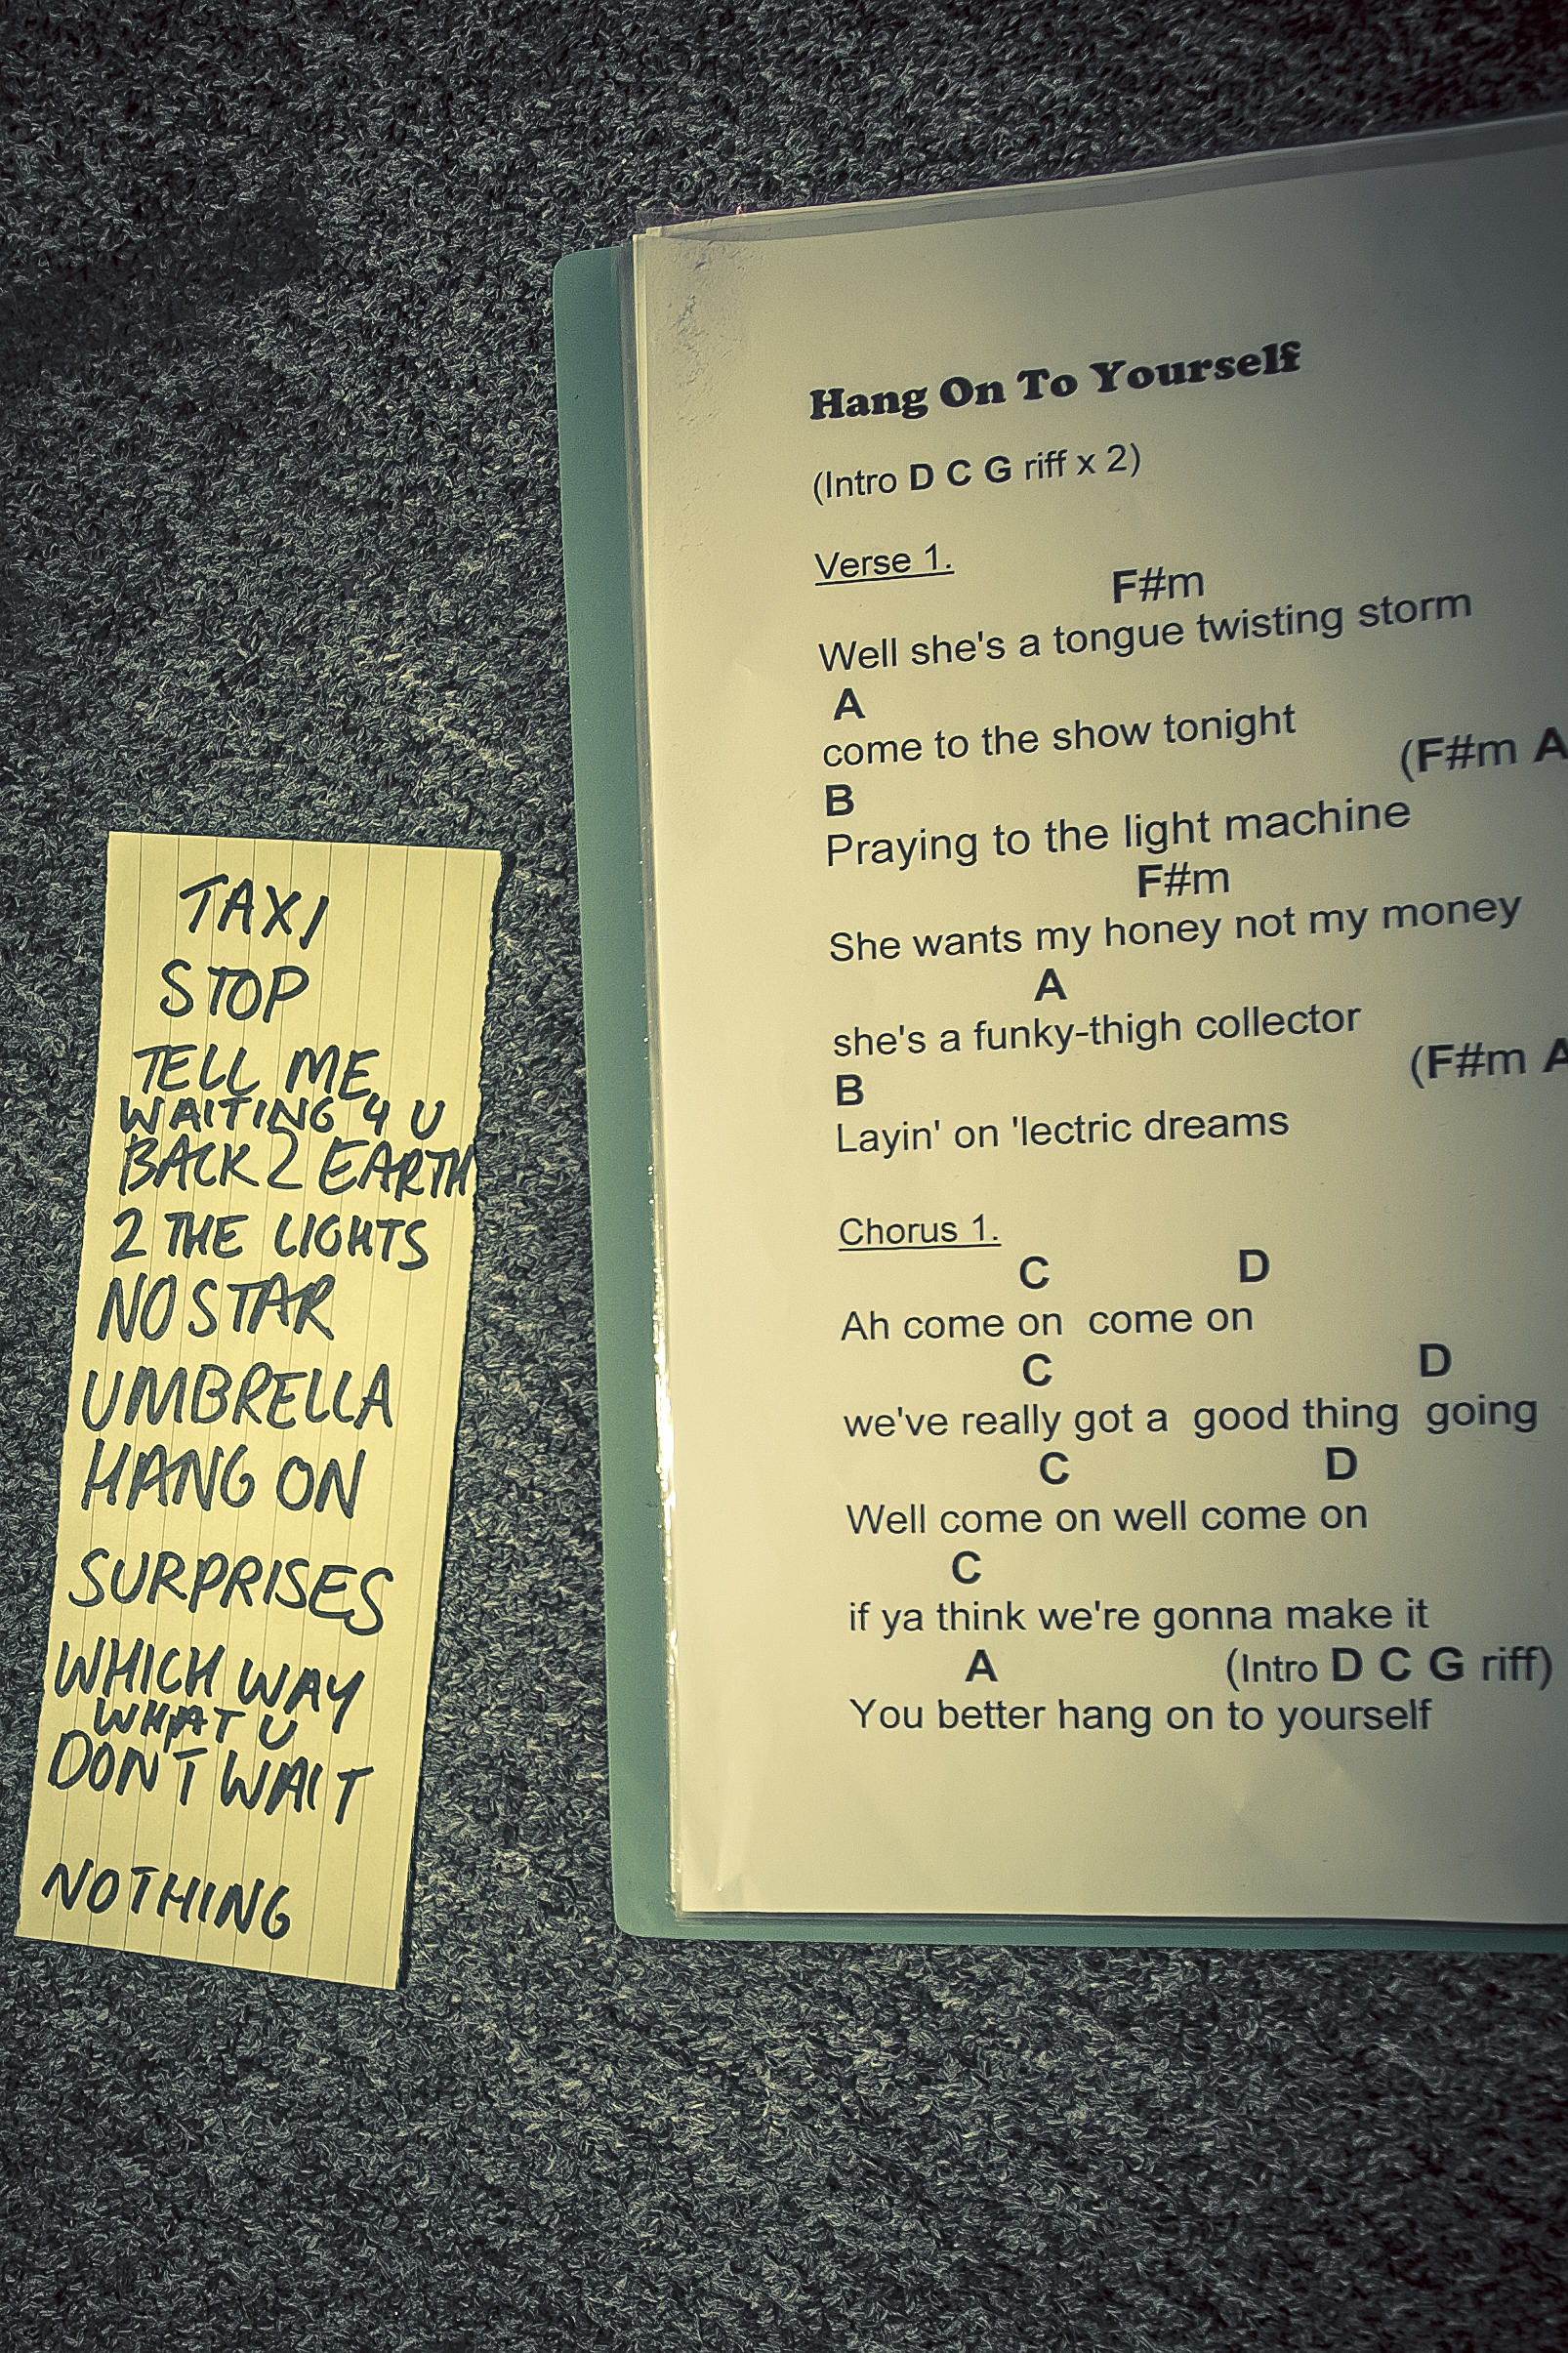 TAXI
STOP
TELL ME
WAITING 4 U
BACK 2 EARTH
2 THE LIGHTS
NO STAR
UMBRELLA
HANG ON
SURPRISES
WHICH WAY
WHAT U
DON'T WAIT
NOTHING
Hang On To Yourself
(Intro D C G riff x 2)
Verse 1.
F#m
Well she's a tongue twisting storm
A
come to the show tonight
(F#m A
B
Praying to the light machine
F#m
She wants my honey not my money
A
she's a funky-thigh collector
(F#m A
B
Layin' on 'lectric dreams
Chorus 1.
C D
Ah come on come on
C D
we've really got a good thing going
C D
Well come on well come on
C
if ya think we're gonna make it
A (Intro D C G riff)
You better hang on to yourself